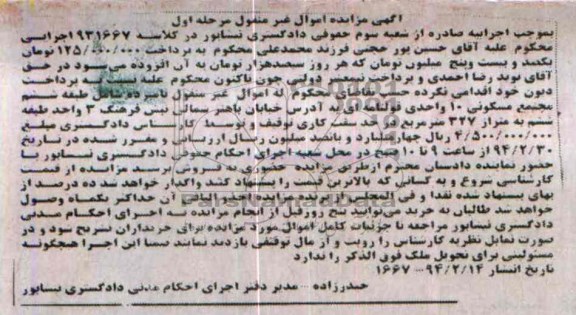 آگهی مزایده اموال غیر منقول مرحله اول
بموجب اجراییه صادره از شعبه سوم حقوقی دادگستری نیشابور در کلاسه ۹۳۱۶۶۷ اجرایی
محکوم علیه آقای حسین پور حجتی فرزند محمدعلی محکوم به پرداخت ۱۲۵/۰۰۰/۰۰۰ تومان
یکصد و بیست و پنج میلیون تومان که هر روز سیصدهزار تومان به آن افزوده می شود در حق
آقای نوید رضا احمدی و پرداخت نیمعشر دولتی چون تاکنون محکوم علیه نسبت به پرداخت
دیون خود اقدامی نکرده محکوم له اموال غیر منقول طبقه ششم
مجتمع مسکونی ۱۰ واحدی به آدرس خیابان باهنر شمالی نبش فرهنگ ۳ واحد طبقه
ششم به متراژ ۳۲۷ مترمربع سفت کاری توقیف و توسط کارشناس دادگستری مبلغ
۴/۵۰۰/۰۰۰/۰۰۰ ریال چهار میلیارد و پانصد میلیون ریال ارزیابی و مقرر شده در تاریخ
۹۴/۲/۳۰ از ساعت ۹ تا ۱۰ صبح در محل شعبه اجرای احکام حقوقی دادگستری نیشابور با
حضور نماینده دادستان محترم ازطریق مزایده حضوری به فروش برسد مزایده از قیمت
کارشناسی شروع و به کسانی که بالاترین قیمت را پیشنهاد کنند واگذار خواهد شد ده درصد از
بهای پیشنهاد شده نقدا و فی المجلس از برنده مزایده آن حداکثر یکماه وصول
خواهد شد طالبان به خرید می‌توانند پنج روز قبل از انجام مزایده به اجرای احکام مدنی
دادگستری نیشابور مراجعه تا جزئیات کامل اموال مورد مزایده برای خریداران تشریح شود و در
صورت تمایل نظریه کارشناس را رویت و از مال توقیفی بازدید نمایند ضمنا این اجرا هیچگونه
مسئولیتی برای تحویل ملک فوق الذکر را ندارد
تاریخ انتشار ۹۴/۲/۱۴ ... ۱۶۶۷
حیدرزاده ... مدیر دفتر اجرای احکام مدنی دادگستری نیشابور